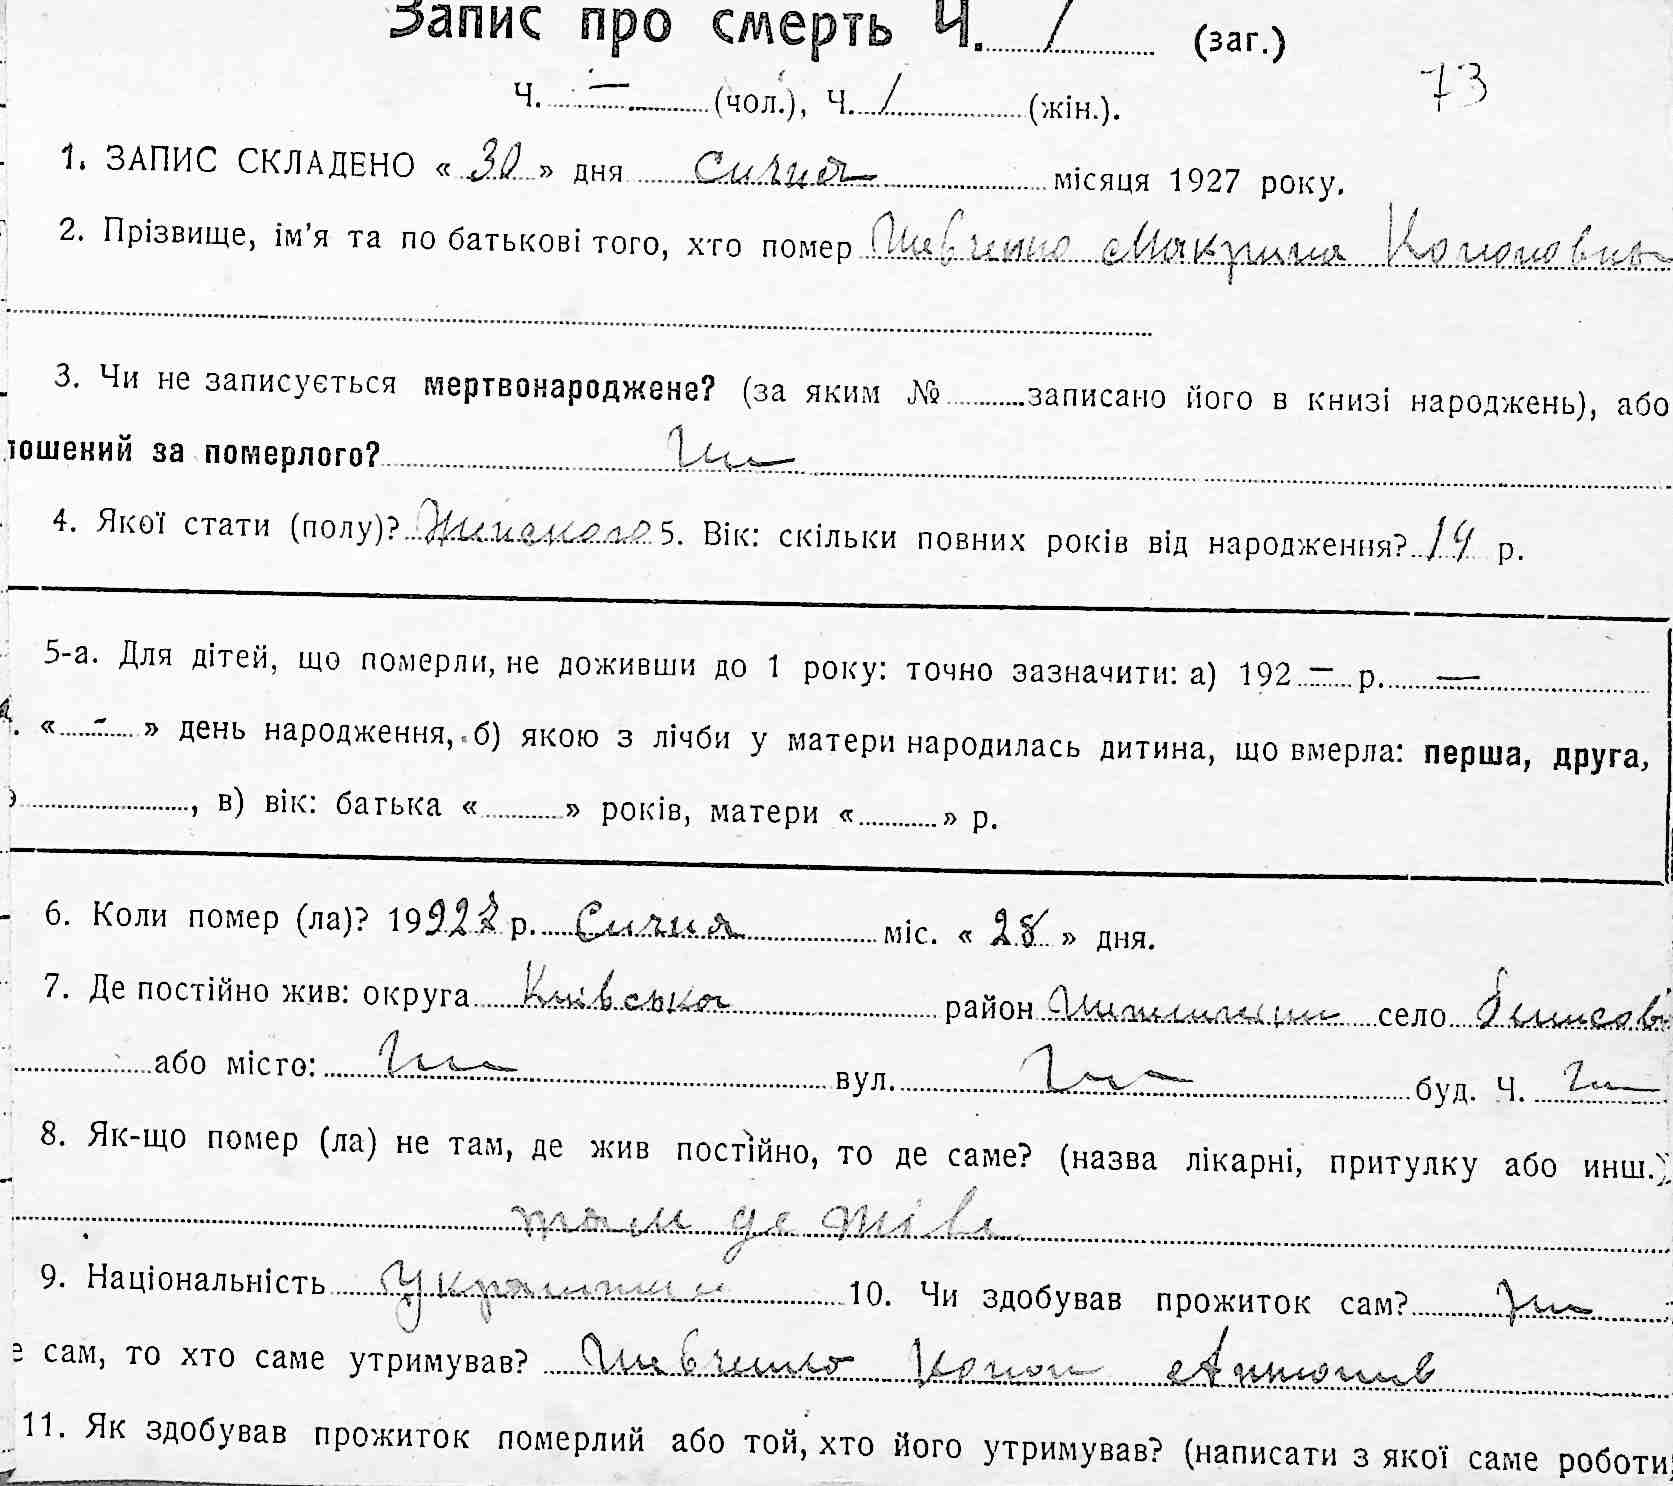 Запис про смерть Ч. 1 (заг.)
73
Ч. — (чол.), Ч. 1 (жін.).
1. ЗАПИС СКЛАДЕНО « 30 » дня Січня місяця 1927 року.
2. Прізвище, ім'я та по батькові того, хто помер Шевченко Макрина Кононовна
3. Чи не записується мертвонароджене? (за яким № записано його в книзі народжень), або
лошений за померлого? Ні
4. Якої стати (полу)? Жіночого 5. Вік: скільки повних років від народження? 14 р.
5-а. Для дітей, що померли, не доживши до 1 року: точно зазначити: а) 192 — р. —
« - » день народження, б) якою з лічби у матери народилась дитина, що вмерла: перша, друга,
, в) вік: батька « » років, матери « » р.
6. Коли помер (ла)? 19927 р. Січня міс. « 28 » дня.
7. Де постійно жив: округа Київська район село
або місто: Ні вул. Ні буд. Ч. Ні
8. Як-що помер (ла) не там, де жив постійно, то де саме? (назва лікарні, притулку або инш.)
там де жила
9. Національність 10. Чи здобував прожиток сам? Ні
е сам, то хто саме утримував? Шевченко Конон Антонів
11. Як здобував прожиток померлий або той, хто його утримував? (написати з якої саме роботи